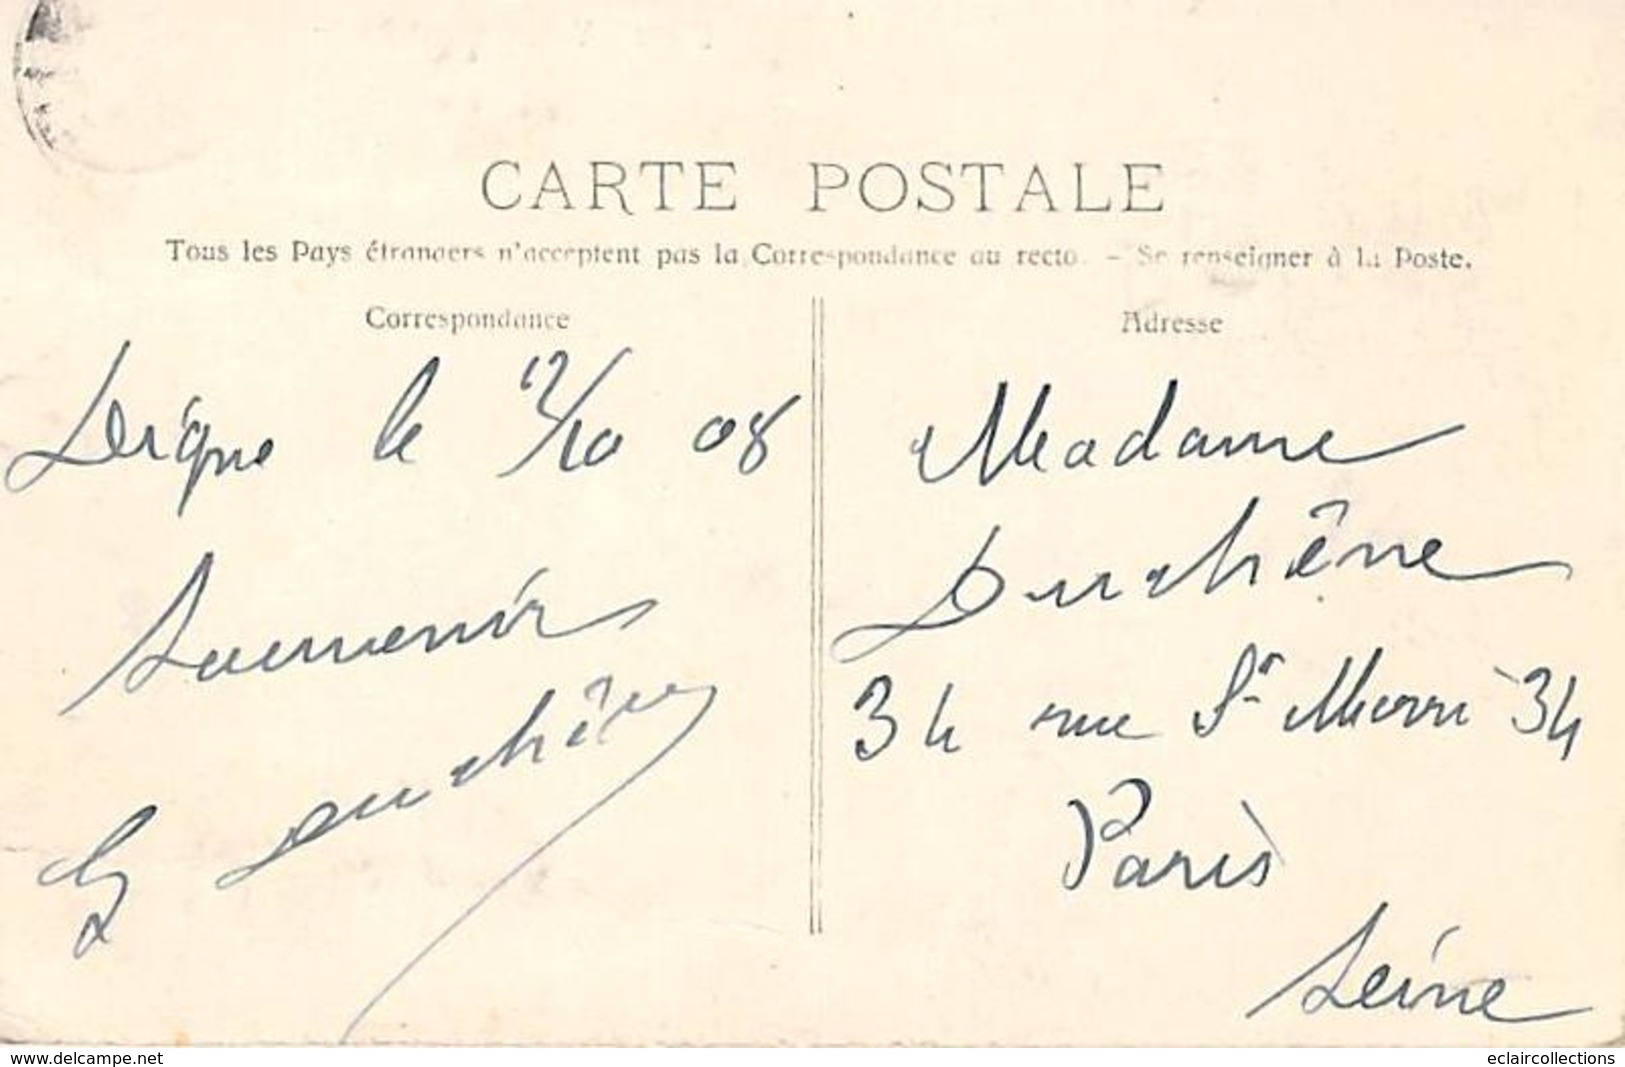 CARTE POSTALE
Tous les Pays étrangers n'acceptent pas la Correspondance au recto. - Se renseigner à la Poste.
Correspondance
Digne le 12/10 08
Souvenir
G Duchêne
Adresse
Madame
Duchêne
34 rue St Merri 34
Paris
Seine
www.delcampe.net
eclaircollections